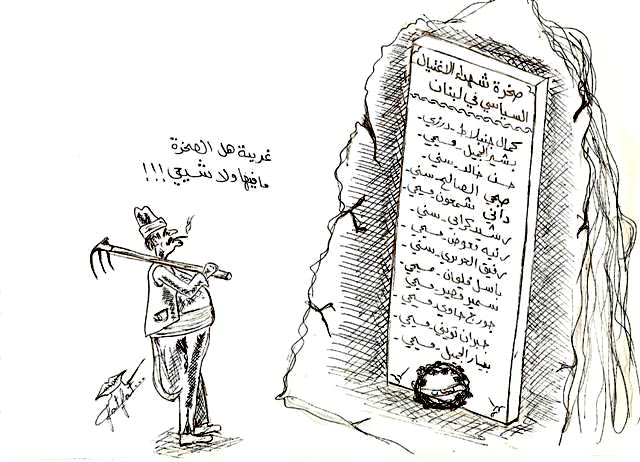 صخرة شهداء الاغتيال
السياسي في لبنان
كمال جنبلاط - درزي
بشير الجميل - مسيحي
حسن خالد - سني
صبحي الصالح - سني
داني شمعون - مسيحي
رشيد كرامي - سني
رنيه معوض - مسيحي
رفيق الحريري - سني
باسل فليحان - مسيحي
سمير قصير - مسيحي
جورج حاوي - مسيحي
جبران تويني - مسيحي
بيار الجميل - مسيحي
غريبة هل الصخرة
ما فيها ولا شيعي !!!